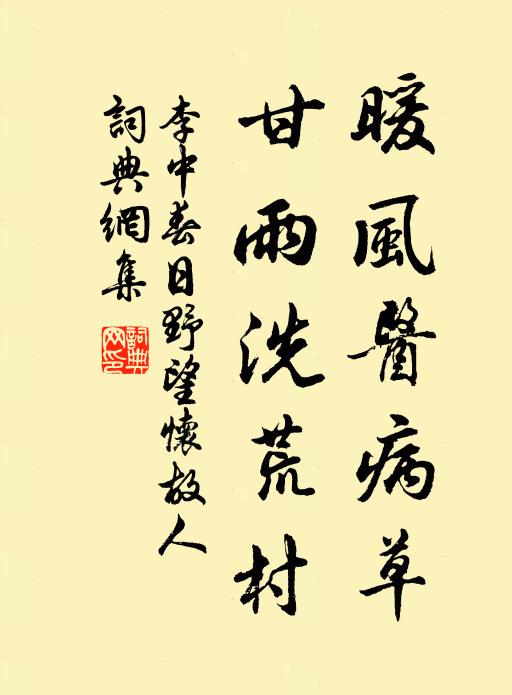 暖風醫病草
甘雨洗荒村
李中春日野望懷故人
詞典網集
詞典
网印